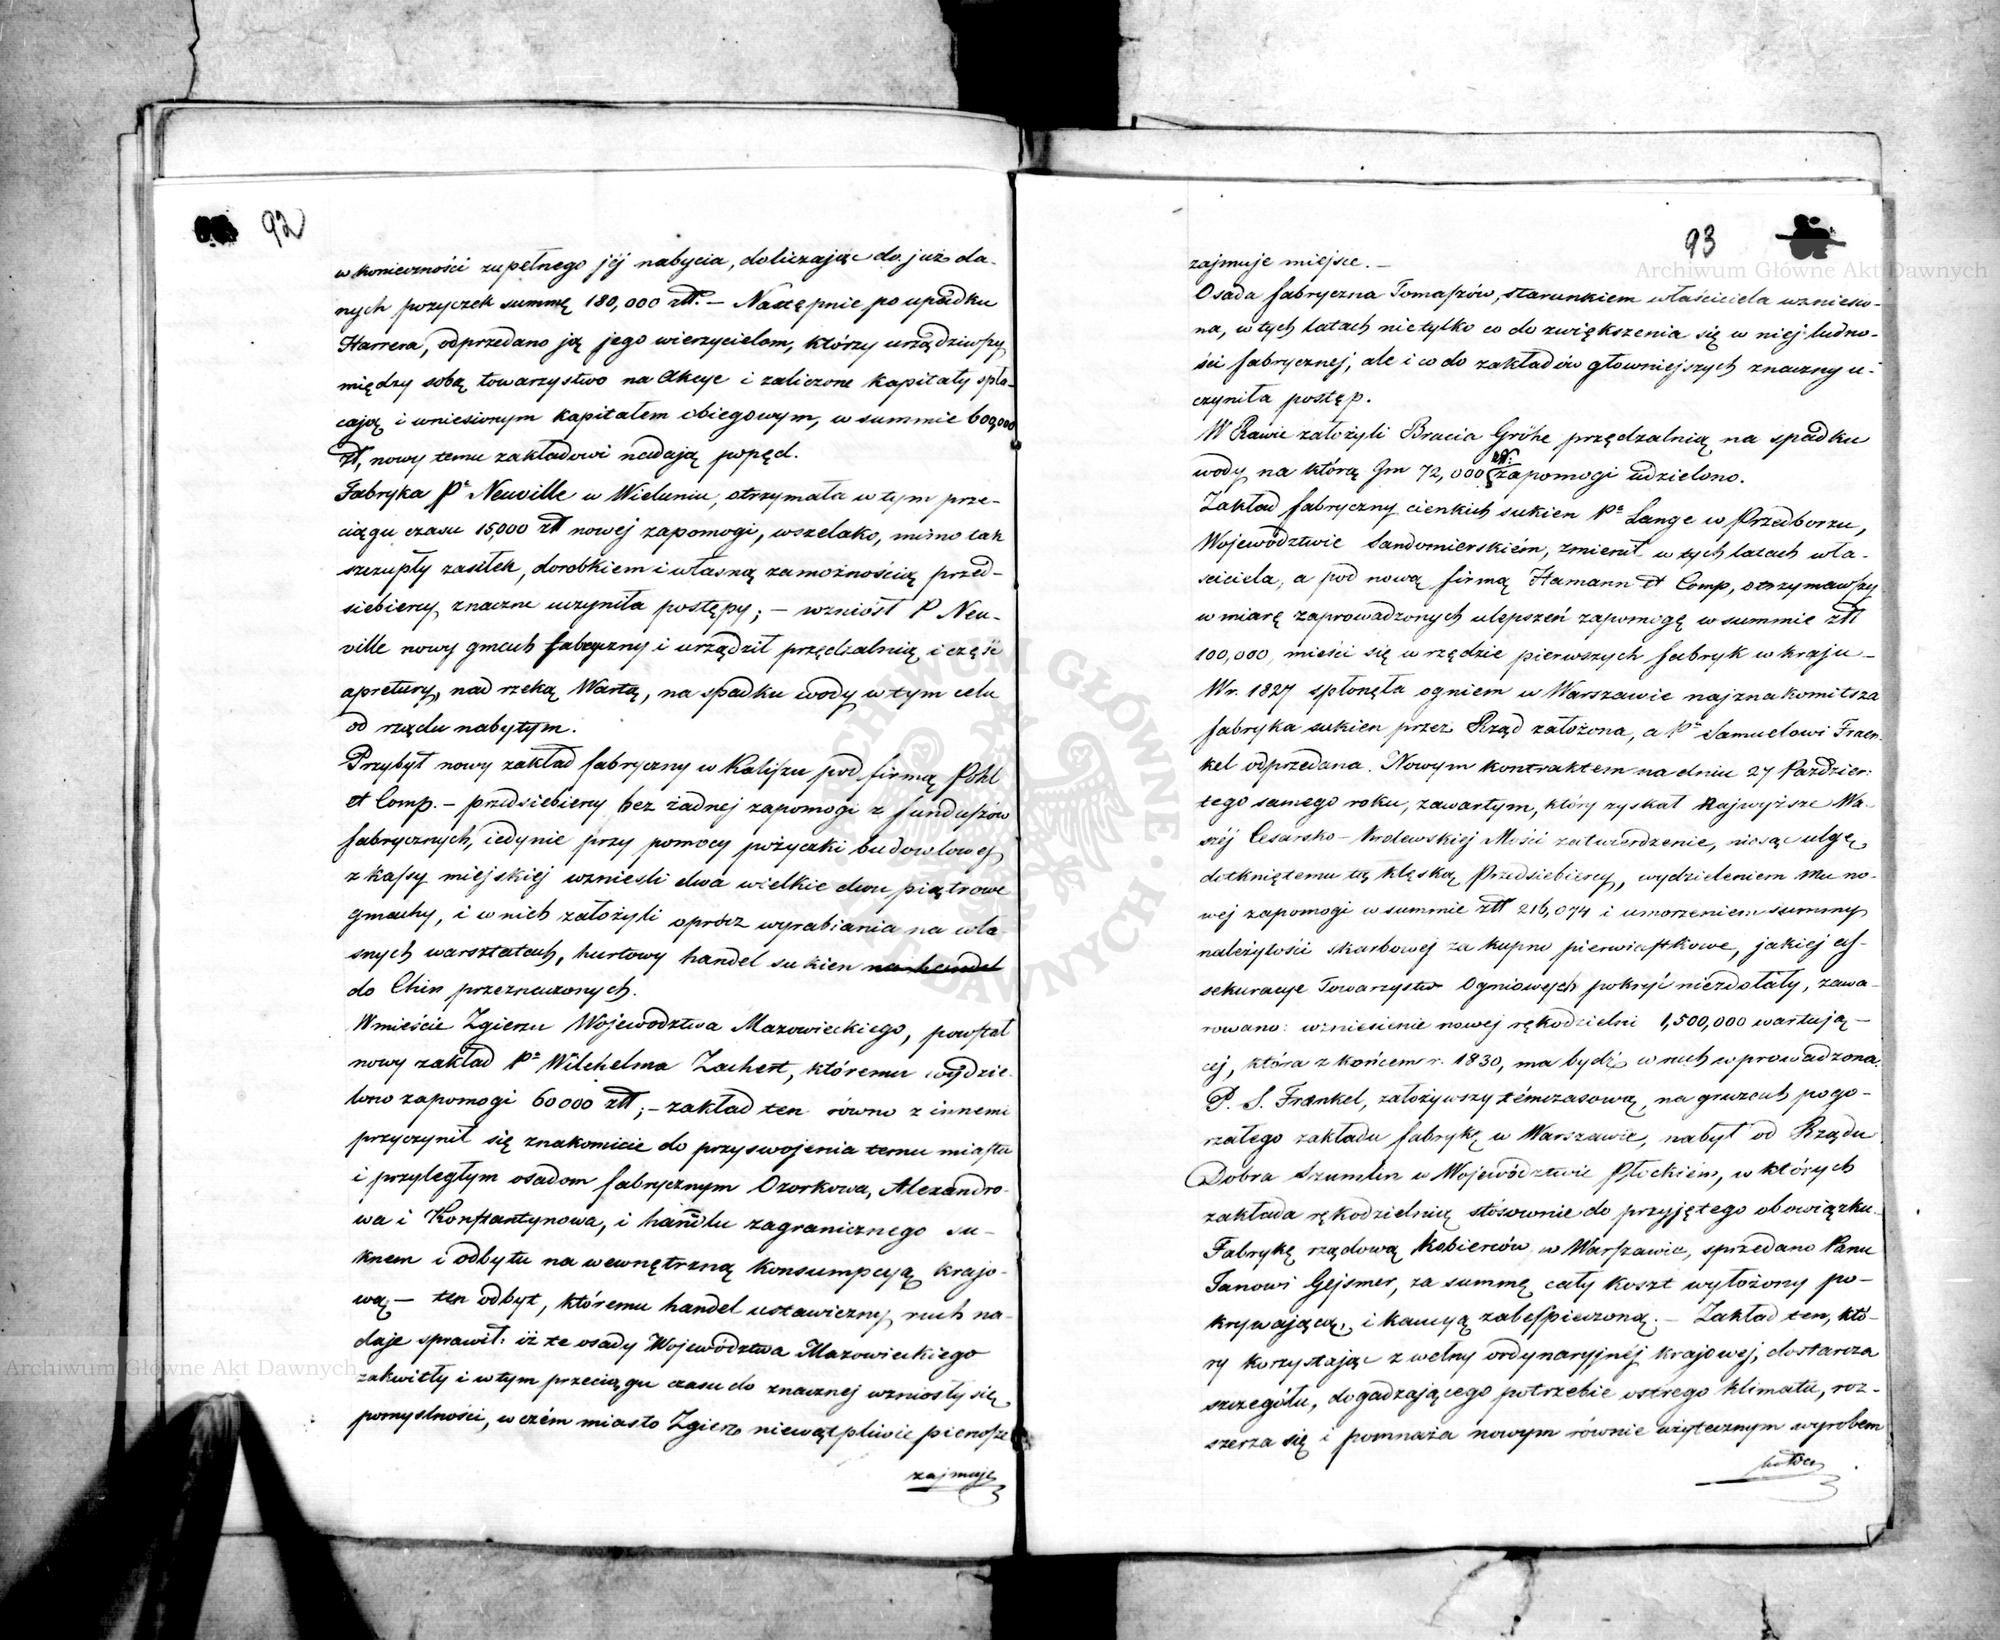 92
w konieczności zupełnego jéj nabycia, doliczając do już da-
nych pożyczek summę 180,000 złł. — Następnie po upadku
Harrera, odprzedano ją jego wierzycielom, którzy urządziwszy
między sobą towarzystwo na Akcye i zaliczone kapitały spła-
cają i wniesionym kapitałem obiegowym, w summie 600,000
Zł, nowy temu zakładowi nadają popęd.
Fabryka Pa Neuville w Wieluniu, otrzymała w tym prze-
ciągu czasu 15,000 złł nowej zapomogi, wszelako, mimo tak
szczupły zasiłek, dorobkiem i własną zamożnością przed-
siebiercy znaczne uczyniła postępy; — wzniósł P Neu-
ville nowy gmach fabryczny i urządził przędzalnią i część
apretury, nad rzeką Wartą, na spadku wody w tym celu
od rządu nabytym.
Przybył nowy zakład fabryczny w Kaliszu pod firmą Pohl
et Comp. — przedsiebiercy bez żadnej zapomogi z funduszów
fabrycznych, iedynie przy pomocy pożyczki budowlowej
z kassy miejskiej wznieśli dwa wielkie dwu piątrowe
gmachy, i w nich założyli oprócz wyrabiania na wła-
snych warsztatach, hurtowy handel sukien na handel
do Chin przeznaczonych.
W mieście Zgierzu Województwa Mazowieckiego, powstał
nowy zakład Pa Wilchelma Zachert, któremu wydzie-
lono zapomogi 60000 złł; — zakład ten równo z innemi
przyczynił się znakomicie do przyswojenia temu miastu
i przyległym osadom fabrycznym Ozorkowa, Alexandro-
wa i Konstantynowa, i handlu zagranicznego su-
knem i odbytu na wewnętrzną konsumpcyą krajo-
wą — ten odbyt, któremu handel ustawiczny ruch na-
daje sprawił: iż te osady Województwa Mazowieckiego
zakwitły i w tym przeciągu czasu do znacznej wzniosły się
pomyslności, w czém miasto Zgierz niewątpliwie pierwsze
zajmuje
93
zajmuje miejsce. —
Osada fabryczna Tomaszów, starunkiem właściciela wzniesio-
na, w tych latach nietylko co do zwiększenia się w niej ludno-
ści fabrycznej, ale i co do zakładów głowniejszych znaczny u-
czyniła postęp.
W Rawie założyli Bracia Gröhe przędzalnią na spadku
wody, na którą Im 72,000 złł: zapomogi udzielono.
Zakład fabryczny cienkich sukien Pa Lange w Przedborzu,
Województwie Sandomierskiém, zmienił w tych latach wła-
ściciela, a pod nową firmą Hamann et Comp, otrzymawszy
w miarę zaprowadzonych ulepszeń zapomogę w summie złł
100,000, mieści się w rzędzie pierwszych fabryk w kraju —
W r. 1827 spłonęła ogniem w Warszawie najznakomitsza
fabryka sukien przez Rząd założona, a Pu Samuelowi Fraen-
kel odprzedana. Nowym kontraktem na dniu 27 Paździer:
tego samego roku, zawartym, który zyskał Najwyższe Wa-
széj Cesarsko-Krolewskiej Mości zatwierdzenie, niosąc ulgę
dotkniętemu tą klęską Przedsiebiercy, wydzieleniem mu no-
wej zapomogi w summie złł 216,074 i umorzeniem summy
należytości skarbowej za kupno pierwiastkowe, jakiej as-
sekuracye Towarzystw Ogniowych pokryć niezdołały, zawa-
rowano: wzniesienie nowej rękodzielni 1,500,000 wartują-
cej, która z końcem r. 1830, ma bydź w ruch wprowadzona.
P. S. Frænkel, założywszy témczasową, na gruzach pogo-
rzałego zakładu fabrykę w Warszawie, nabył od Rządu
Dobra Szumlin w Województwie Płockiém, w których
zakłada rękodzielnią stósownie do przyjętego obowiązku.
Fabrykę rządową Kobierców w Warszawie, sprzedano Panu
Janowi Gejsmer, za summę cały koszt wyłożony po-
krywającą, i kaucyą zabespieczoną. — Zakład ten, któ-
ry korzystając z wełny ordynaryjnéj krajowej, dostarcza
szczegółu, dogadzającego potrzebie ostrego klimatu, roz-
szerza się i pomnaża nowym równie użytecznym wyrobem
Archiwum Główne Akt Dawnych
Archiwum Główne Akt Dawnych
ARCHIWUM GŁÓWNE AKT DAWNYCH